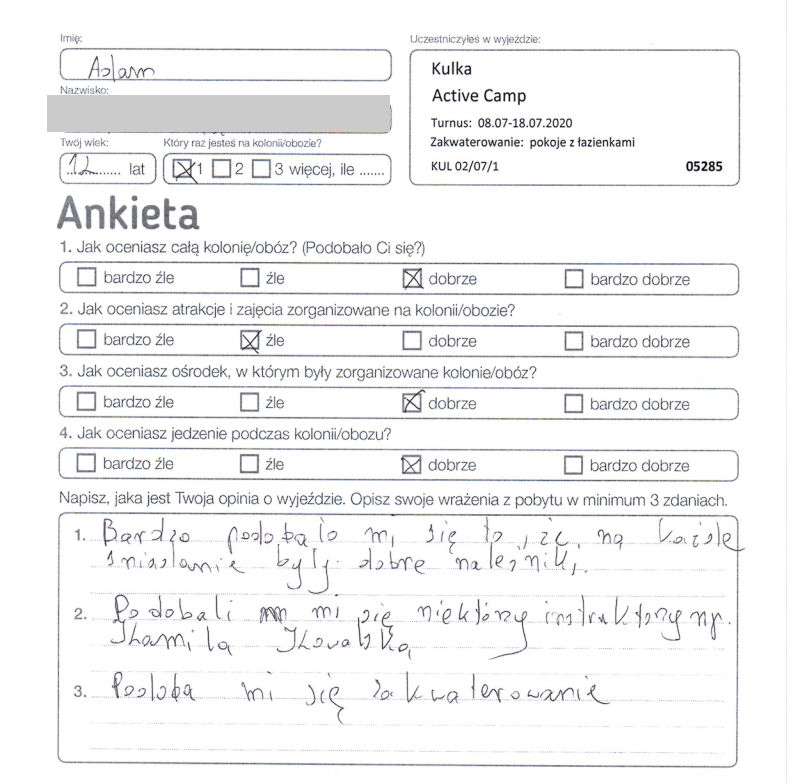 Imię:
Adam
Uczestniczyłeś w wyjeździe:
Kulka
Active Camp
Turnus: 08.07-18.07.2020
Zakwaterowanie: pokoje z łazienkami
KUL 02/07/1 05285
Nazwisko:
Twój wiek: Który raz jesteś na kolonii/obozie?
12 lat 1 2 3 więcej, ile .......
Ankieta
1. Jak oceniasz całą kolonię/obóz? (Podobało Ci się?)
bardzo źle źle dobrze bardzo dobrze
2. Jak oceniasz atrakcje i zajęcia zorganizowane na kolonii/obozie?
bardzo źle źle dobrze bardzo dobrze
3. Jak oceniasz ośrodek, w którym były zorganizowane kolonie/obóz?
bardzo źle źle dobrze bardzo dobrze
4. Jak oceniasz jedzenie podczas kolonii/obozu?
bardzo źle źle dobrze bardzo dobrze
Napisz, jaka jest Twoja opinia o wyjeździe. Opisz swoje wrażenia z pobytu w minimum 3 zdaniach.
1. Bardzo podobało mi się to, że na każde
śniadanie były dobre naleśniki.
2. Podobali mi się niektóry instruktorzy np.
Kamila
3. Podoba mi się zakwaterowanie